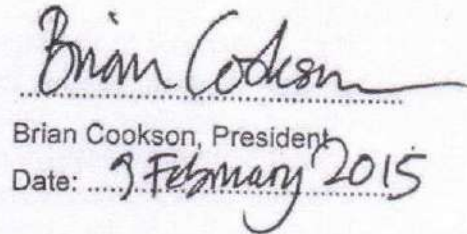 Brian Cookson
Brian Cookson, President
Date: 9 February 2015